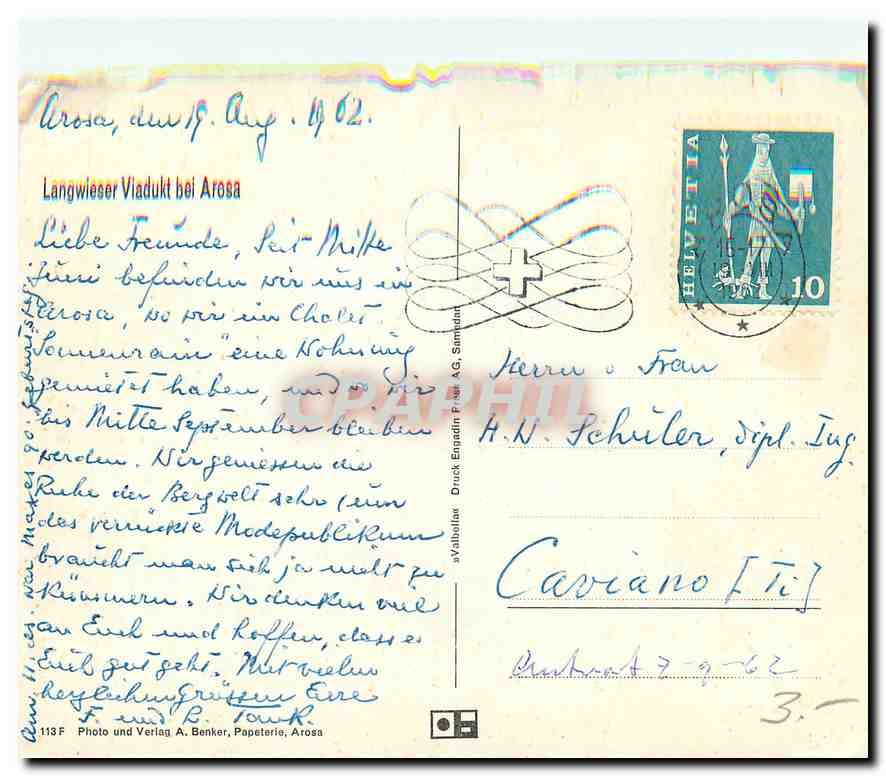 Arosa, den 19. Aug. 1962.
Langwieser Viadukt bei Arosa
Liebe Freunde, Seit Mitte
Juni befinden wir uns in
Arosa, wo wir im Chalet
"Sonnenrain" eine Wohnung
gemietet haben, und wo wir
bis Mitte September bleiben
werden. Wir geniessen die
Ruhe der Bergwelt sehr (um
das verrückte Modepublikum
braucht man sich ja nicht zu
kümmern. Wir denken viel
an Euch und hoffen, dass es
Euch gut geht. Mit vielen
herzlichen Grüssen Eure
F. und L. Tank.
Am 11. war Maxes 90. Geburtstag
113 F Photo und Verlag A. Benker, Papeterie, Arosa
»Valbella« Druck Engadin Press AG, Samedan
HELVETIA
10
Herrn u Frau
H. W. Schüler, dipl. Ing.
Caviano [Ti]
Antwort 7-9-62
3.-
CPAPHIL